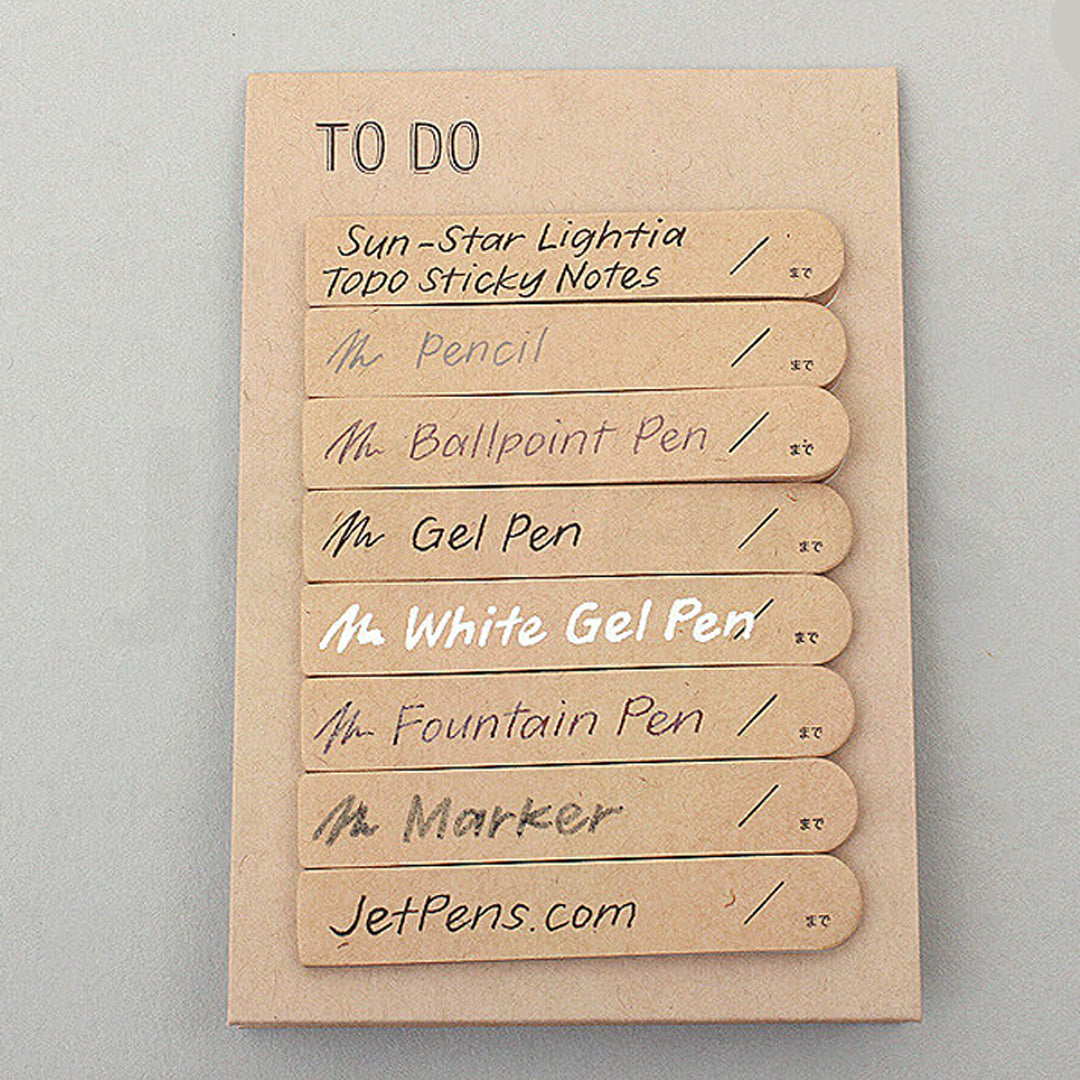 TO DO
Sun-Star Lightia
ToDo Sticky Notes
/ まで
Pencil / まで
Ballpoint Pen / まで
Gel Pen / まで
White Gel Pen / まで
Fountain Pen / まで
Marker / まで
JetPens.com / まで